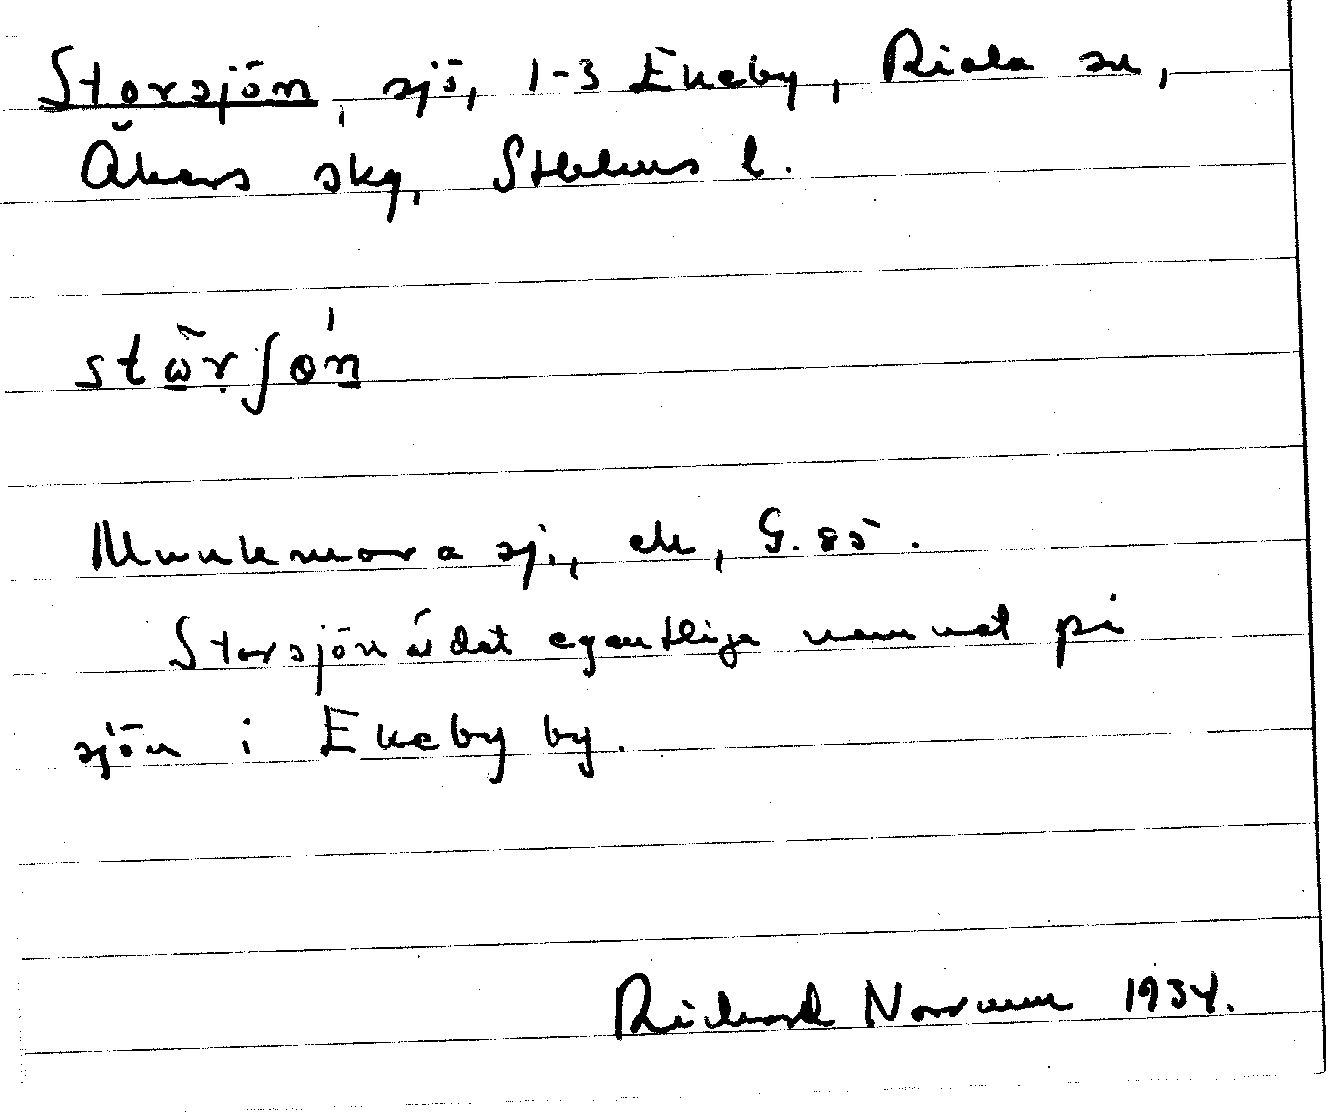 Storsjön, sjö, 1-3 Ekeby, Riala sn,
Åkers skg, Sthlms l.
Munkmora sj., ek, G. 85.
Storsjön är det egentliga namnet på
sjön i Ekeby by.
Richard Norrman 1934.